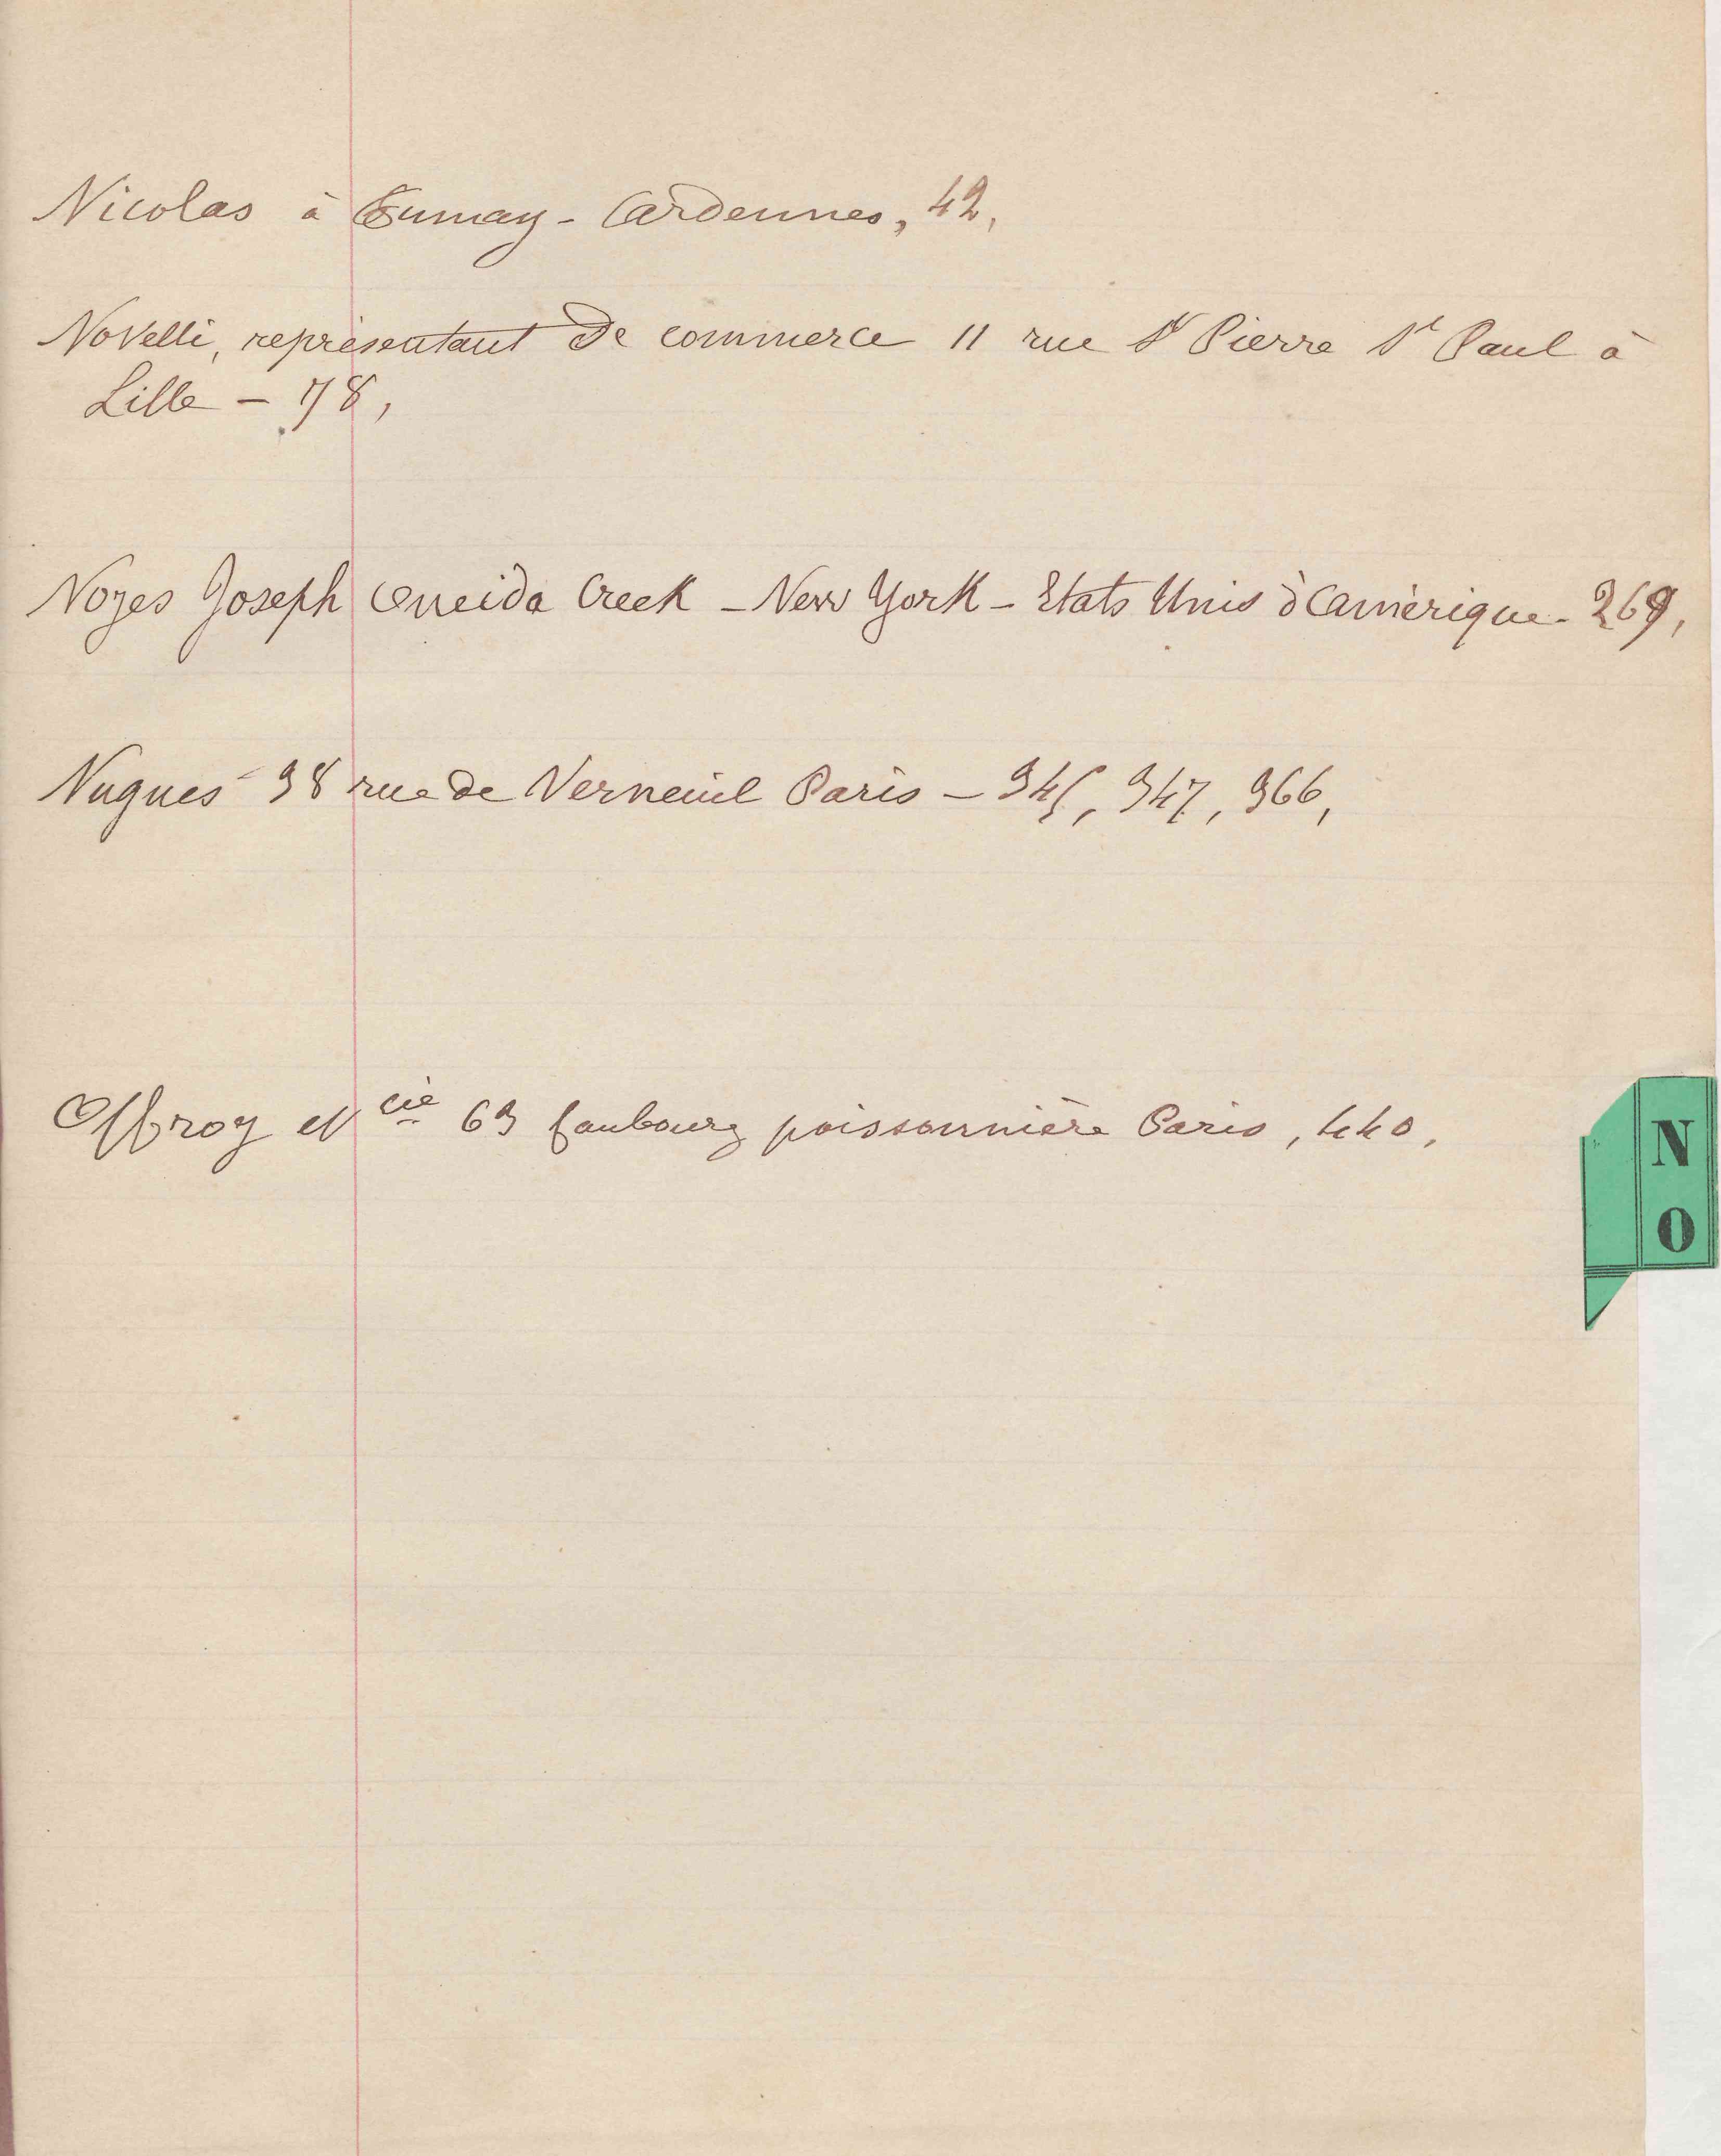 Nicolas à Fumay - Ardennes, 42,
Novelli, représentant de commerce 11 rue St Pierre St Paul à
Lille - 78,
Noyes Joseph Oneida Creek - New York - Etats Unis d'Amérique - 269,
Nugues 38 rue de Verneuil Paris - 345, 347, 366,
Offroy et Cie 63 faubourg poissonnière Paris, 440,
N
O